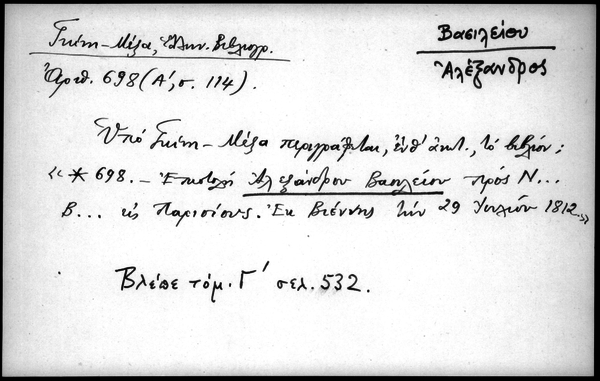 Γκίνη-Μέξα, Ἑλλην. Βιβλιογρ.
Βασιλείου
Ἀλέξανδρος
Ἀριθ. 698 (Α΄, σ. 114).
Ὑπό Γκίνη-Μέξα περιγράφεται, ἐνθ' ἀνωτ., τό βιβλίον:
«*698. - Ἐπιστολή Ἀλεξάνδρου Βασιλείου πρός Ν...
Β... εἰς Παρισίους. Ἐκ Βιέννης τήν 29 Ἰουλίου 1812.»
Βλέπε τόμ. Γ΄ σελ. 532.